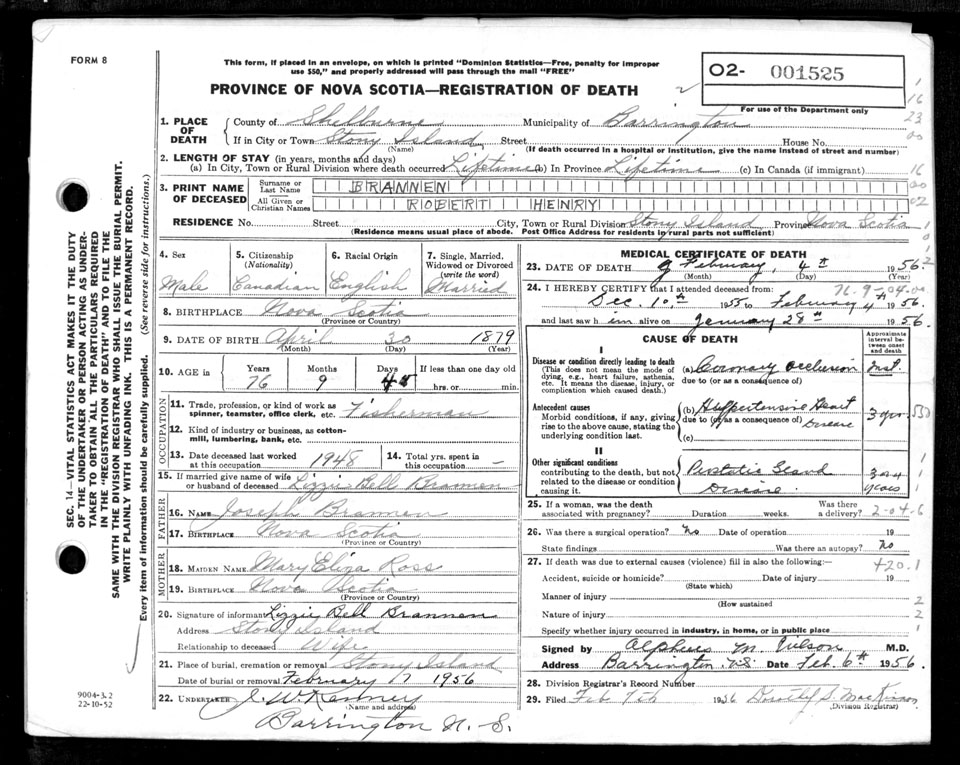 FORM 8
This form, if placed in an envelope, on which is printed "Dominion Statistics—Free, penalty for improper
use $50," and properly addressed will pass through the mail "FREE"
PROVINCE OF NOVA SCOTIA—REGISTRATION OF DEATH
O2- 001525
For use of the Department only
1. PLACE OF DEATH
County of Shelburne Municipality of Barrington
If in City or Town Stony Island Street House No.
(Name) (If death occurred in a hospital or institution, give the name instead of street and number)
2. LENGTH OF STAY (in years, months and days)
(a) In City, Town or Rural Division where death occurred Lifetime (b) In Province Lifetime (c) In Canada (if immigrant)
3. PRINT NAME OF DECEASED
Surname or Last Name BRANNEN
All Given or Christian Names ROBERT HENRY
RESIDENCE No. Street City, Town or Rural Division Stony Island Province Nova Scotia
(Residence means usual place of abode. Post Office Address for residents by rural parts not sufficient)
4. Sex
Male
5. Citizenship
(Nationality)
Canadian
6. Racial Origin
English
7. Single, Married,
Widowed or Divorced
(write the word)
Married
8. BIRTHPLACE Nova Scotia
(Province or Country)
9. DATE OF BIRTH April 30 1879
(Month) (Day) (Year)
10. AGE in Years Months Days If less than one day old
76 9 hrs. or min.
OCCUPATION
11. Trade, profession, or kind of work as
spinner, teamster, office clerk, etc. Fisherman
12. Kind of industry or business, as cotton-
mill, lumbering, bank, etc.
13. Date deceased last worked
at this occupation 1948
14. Total yrs. spent in
this occupation –
15. If married give name of wife
or husband of deceased Lizzie Bell Brannen
FATHER
16. NAME Joseph Brannen
17. BIRTHPLACE Nova Scotia
(Province or Country)
MOTHER
18. MAIDEN NAME Mary Eliza Ross
19. BIRTHPLACE Nova Scotia
(Province or Country)
20. Signature of informant Lizzie Bell Brannen
Address Stony Island
Relationship to deceased Wife
21. Place of burial, cremation or removal Stony Island
Date of burial or removal February 7 1956
22. UNDERTAKER J. W. Kenney
(Name and address)
Barrington N. S.
MEDICAL CERTIFICATE OF DEATH
23. DATE OF DEATH February 4th 1956
(Month) (Day) (Year)
24. I HEREBY CERTIFY that I attended deceased from:
Dec. 10th 1955 to February 4th 1956
and last saw him alive on January 28th 1956.
CAUSE OF DEATH
Approximate
interval be-
tween onset
and death
I
Disease or condition directly leading to death
(This does not mean the mode of
dying, e.g., heart failure, asthenia,
etc. It means the disease, injury, or
complication which caused death.)
(a) Coronary occlusion Inst.
due to (or as a consequence of)
Antecedent causes
Morbid conditions, if any, giving
rise to the above cause, stating the
underlying condition last.
(b) Hypertensive Heart
due to (or as a consequence of) Disease 3 yrs.
(c)
II
Other significant conditions
contributing to the death, but not
related to the disease or condition
causing it.
Prostatic Gland
Disease years
25. If a woman, was the death Was there
associated with pregnancy? Duration weeks. a delivery? 2-04-6
26. Was there a surgical operation? No Date of operation 19
State findings Was there an autopsy? No
27. If death was due to external causes (violence) fill in also the following:— 420.1
Accident, suicide or homicide? Date of injury 19
(State which)
Manner of injury
(How sustained
Nature of injury
Specify whether injury occurred in industry, in home, or in public place
Signed by Alpheus M. Wilson M.D.
Address Barrington N.S. Date Feb. 6th 1956.
28. Division Registrar's Record Number
29. Filed Feb 7th 1956
(Division Registrar)
SEC. 14—VITAL STATISTICS ACT MAKES IT THE DUTY
OF THE UNDERTAKER OR PERSON ACTING AS UNDER-
TAKER TO OBTAIN ALL THE PARTICULARS REQUIRED
IN THE "REGISTRATION OF DEATH" AND TO FILE THE
SAME WITH THE DIVISION REGISTRAR WHO SHALL ISSUE THE BURIAL PERMIT.
WRITE PLAINLY WITH UNFADING INK. THIS IS A PERMANENT RECORD.
Every item of information should be carefully supplied. (See reverse side for instructions.)
9004-3.2
22-10-52